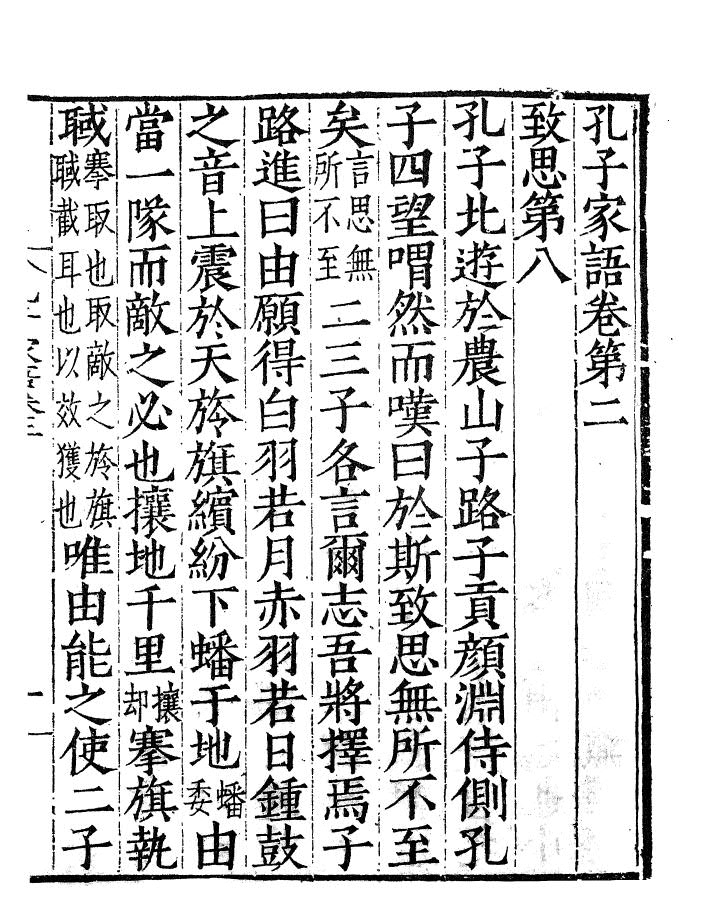 孔子家語卷第二
致思第八
孔子北遊於農山子路子貢顏淵侍側孔
子四望喟然而嘆曰於斯致思無所不至
矣言思無所不至二三子各言爾志吾將擇焉子
路進曰由願得白羽若月赤羽若日鍾鼓
之音上震於天旍旗繽紛下蟠于地蟠委由
當一隊而敵之必也攘地千里攘却搴旗執
聝搴取也取敵之旍旗聝截耳也以效獲也唯由能之使二子